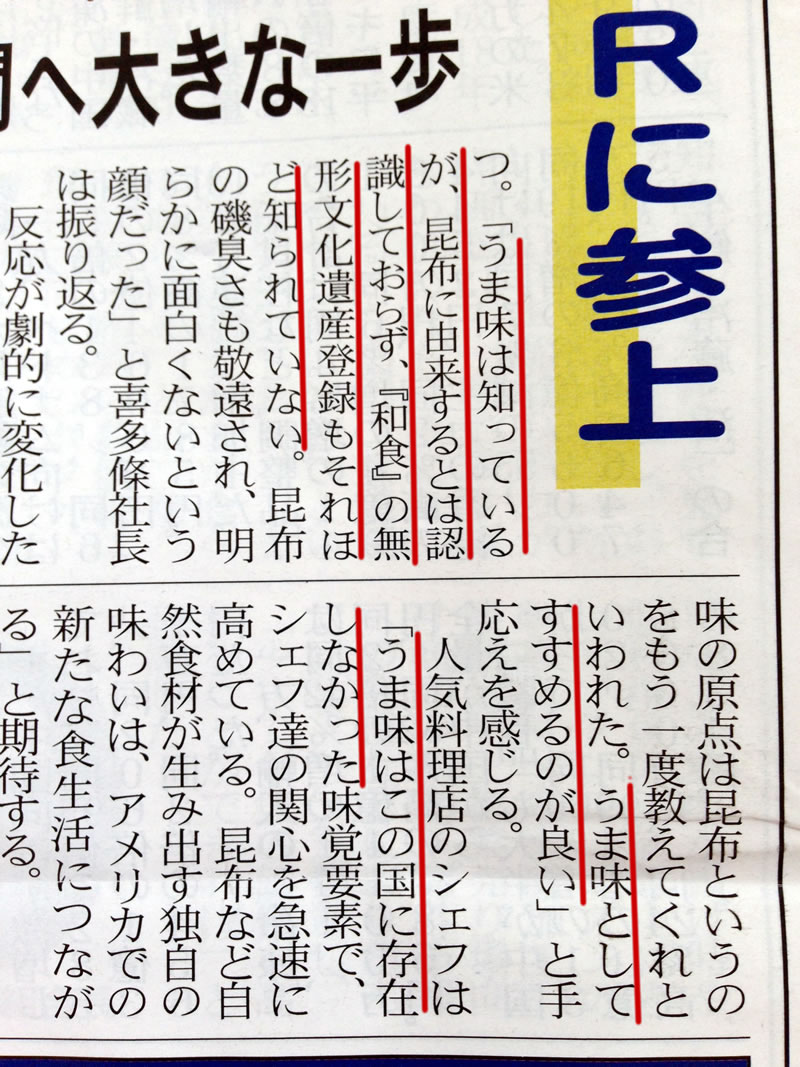 Rに参上
へ大きな一歩
つ。「うま味は知っている
が、昆布に由来するとは認
識しておらず、『和食』の無
形文化遺産登録もそれほ
ど知られていない。昆布
の磯臭さも敬遠され、明
らかに面白くないという
顔だった」と喜多條社長
は振り返る。
反応が劇的に変化した
味の原点は昆布というの
をもう一度教えてくれと
いわれた。うま味として
すすめるのが良い」と手
応えを感じる。
人気料理店のシェフは
「うま味はこの国に存在
しなかった味覚要素で、
シェフ達の関心を急速に
高めている。昆布など自
然食材が生み出す独自の
味わいは、アメリカでの
新たな食生活につなが
る」と期待する。